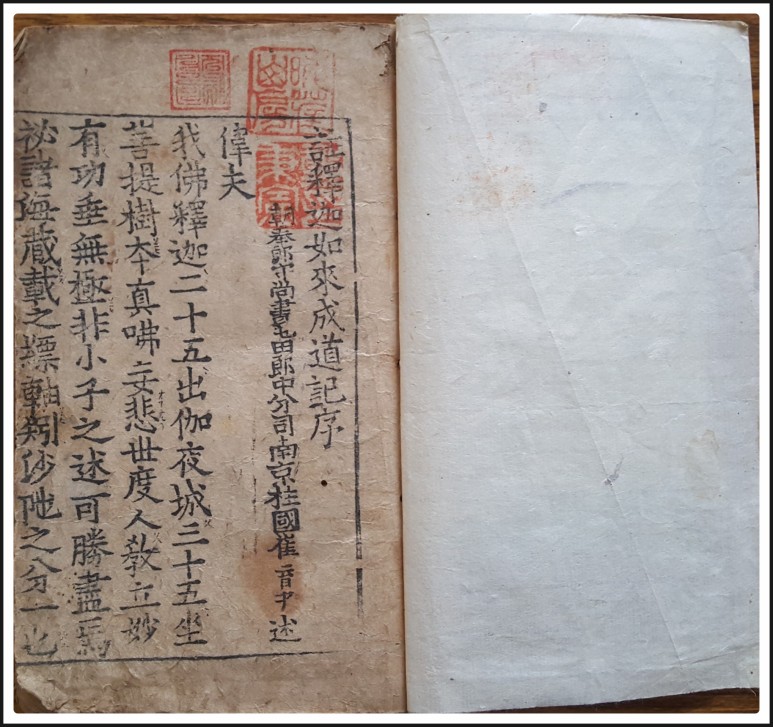 註釋迦如來成道記序
朝奉郎守尚書屯田郎中分司南京柱國崔育才述
偉夫
我佛釋迦二十五出伽夜城三十五坐
菩提樹夲真咈妄悲世度人敎立妙
有功垂無極非小子之述可勝盡焉
祕諸海藏載之縹軸剡沙陁之八分一也